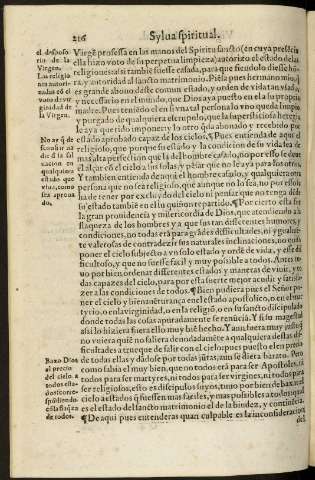 216 Sylua spiritual.
el desposorio de la Virgen.
Los religiosos autorizados cõ el voto de virginidad de la Virgen.
No ay q̃ desconfiar al de fu la saluacion en qualquiera estado que viua, como sea aprouado.
Baxo Dios el precio del cielo a todos estados correspõdiendo a la flaq̃za de todos.
Virgẽ professa en las manos del Spiritu sancto (en cuya presẽcia
ella hizo voto de su perpetua limpieza) autorizò el estado de las
religiones: y assi tambiẽ fuesse casada, para que siẽdolo diesse hõra
y autoridad al sancto matrimonio. Piẽsa pues hermano mio,
es grande abono deste comun estado, y orden de vida
y necessario en el mundo, que Dios aya puesto en el a su propia
madre. Pues entiende en
y purgado de qualquiera escrupulo, que la supersticiosa heregia
le aya querido imponer: y lo otro quã abonado y recebido por
estado aprobado capaz de los cielos. ¶ Pues entiẽda de aqui el
religioso, que porque su estado y la condicion de su vida sea de
mas alta perfection que la del hombre casado, no por esso se deue
el alçar cõ el cielo a solas, y pẽsar que no le aya para los otros.
Y tambien entienda de aqui el hombre casado, y qualquiera otra
persona que no sea religiosa, que aunque no lo sea, no por esso se
ha de tener por excluydo del cielo: ni pensar que no tenga dios
su estado tambiẽ en el su quiñon repartido. ¶ Por cierto esta fue
la gran prouidencia y misericordia de Dios, que atendiendo a la
flaqueza de los hombres y a que sus tan differentes humores, y
condiciones, no todas erã para grãdes difficultades, ni ygualmẽ-
te valerosas de contradezir sus naturales inclinaciones, no quiso
poner el cielo subjecto a vn solo estado y ordẽ de vida, y esse difficultoso,
y que no fuesse facil y muy possible a todos. Antes tuuo
por bien ordenar differentes estados y maneras de viuir, y todas
capaces del cielo, para por esta suerte mejor acudir y satisfazer
a las condiciones de todos. ¶ Bien pudiera pues el Señor poner
el cielo y bienauẽturança en el estado apostolico, o en el martyrio,
o en la virginidad, o en la religiõ, o en su sancto discipulado
donde todas las cosas apuradamente se renũcia. Y si su magestad
assi lo hiziera fuera ello muy biẽ hecho. Y aun fuera muy justo q̃
no vuiera quiẽ no saliera denodadamẽte a qualquiera destas difficultades
a trueque de salir con el cielo: pues puesto en el precio
de todas ellas y dãdose por todas jũtas, aun se diera barato. Pero
como sabia el muy bien, que no todos erã para ser Apostoles, ni
todos para ser martyres, ni todos para ser virgines, ni todos para
ser religiosos, esto es discipulos suyos, tuuo por biẽ de baxar el
cielo a estados q̃ fuessen mas faciles, y mas possibles a todos: qual
es el estado del sancto matrimonio el de la biudez, y continẽcia.
¶ De aqui pues entenderas quan culpable es la inconsideracion
del